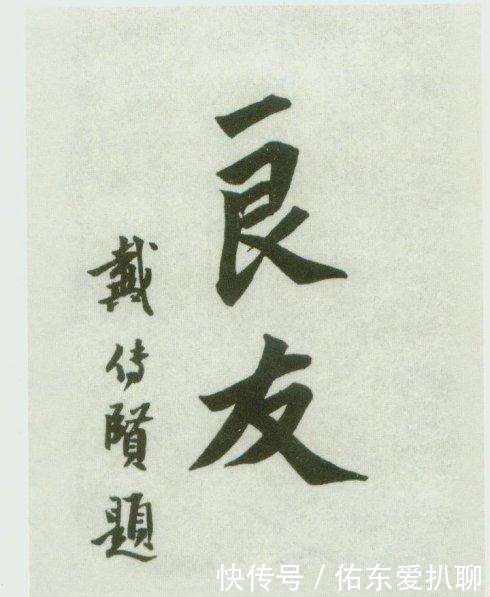 良友
戴传賢題
快传号 / 佑东爱扒聊